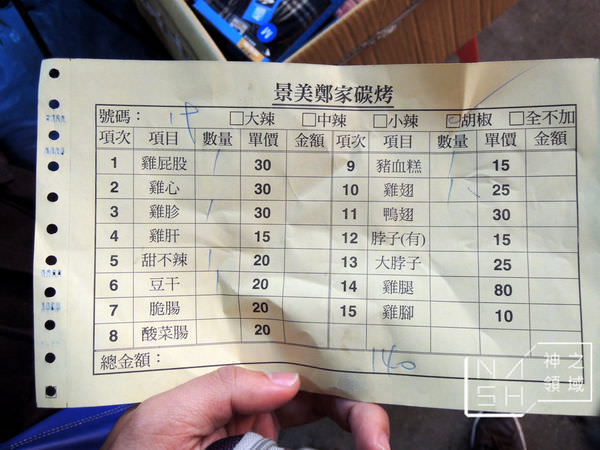 M
景美鄭家碳烤
號碼： □大辣 □中辣 □小辣 □胡椒 □全不加
項次 項目 數量 單價 金額 項次 項目 數量 單價 金額
1 雞屁股 1 30 9 豬血糕 1 15
2 雞心 30 10 雞翅 1 25
3 雞胗 1 30 11 鴨翅 30
4 雞肝 15 12 脖子(有) 15
5 甜不辣 1 20 13 大脖子 25
6 豆干 1 20 14 雞腿 80
7 脆腸 20 15 雞腳 10
8 酸菜腸 20
總金額： 140
NASH 神之領域